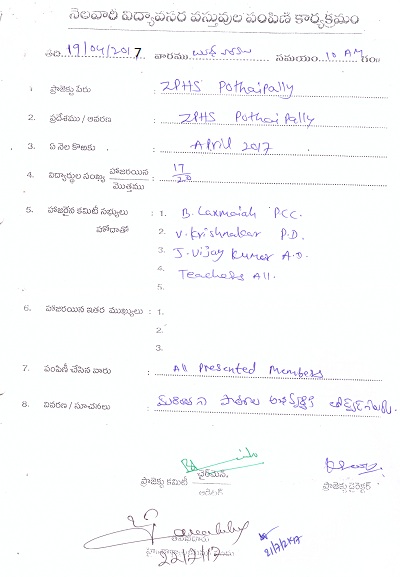 నెలవారీ విద్యావసర వస్తువుల పంపిణి కార్యక్రమం
తేది 19/04/2017 వారము బుధవారం సమయం 10 AM గం॥
1. ప్రాజెక్టు పేరు : ZPHS Pothaipally
2. ప్రదేశము / ఆవరణ : ZPHS Pothaipally
3. ఏ నెల కొఱకు : April 2017
4. విద్యార్థుల సంఖ్య హాజరయిన / మొత్తము : 17/20
5. హాజరైన కమిటీ సభ్యులు : 1. B. Laxmaiah PCC.
హోదాతో 2. V. Krishnakar P.D.
3. J. Vijay Kumar A.D.
4. Teachers All.
5.
6. హాజరయిన ఇతర ముఖ్యులు : 1.
2.
3.
7. పంపిణీ చేసిన వారు : All Presented Members
8. వివరణ / సూచనలు :
ప్రాజెక్టు కమిటీ ఛైర్మెన్,
ఆడిటర్
ప్రాజెక్టు డైరెక్టర్
21/7/2017
22/7/17